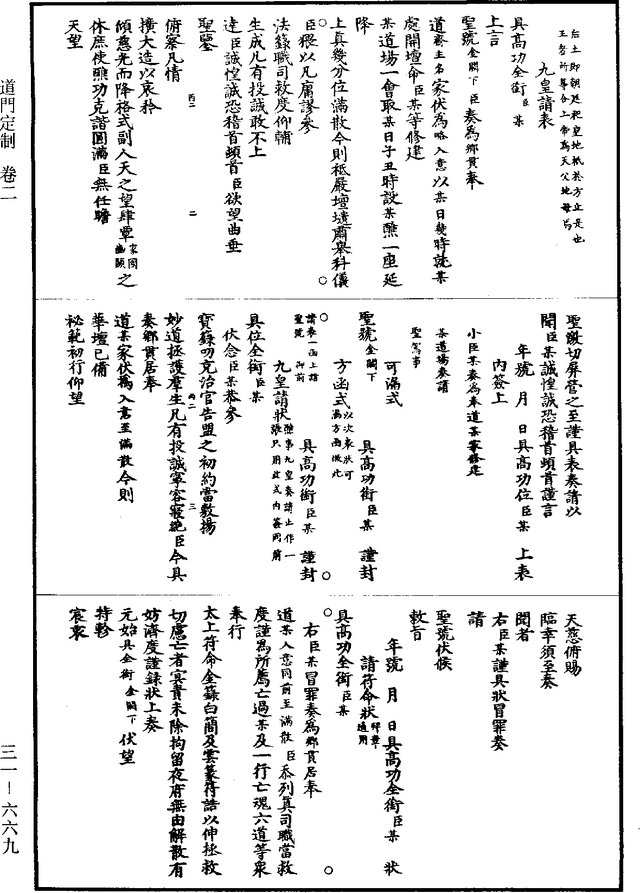 后土即朝廷祀皇地祇於方丘是也
王者所尊合上帝為天父地母焉
九皇請表
具高功全銜臣某
上言
聖號金闕下臣奏為鄉貫奉
道齋主名家伏為略入意以某日幾時就某
處開壇命臣某等修建
某道場一會取某日子丑時設某醮一座延
降
上真幾分位滿散今則祗嚴壇墠肅舉科儀
臣猥以凡庸謬參
法籙職司救度仰輔
生成凡有投誠敢不上
達臣誠惶誠恐稽首頓首臣欲望曲垂
聖鑒
丙二 二
俯察凡情
擴大造以哀矜
傾慈光而降格式副人天之望肆覃家國幽顯之
休庶使熙功克諧圓滿臣無任瞻
天望
聖激切屏營之至謹具表奏請以
聞臣某誠惶誠恐稽首頓首謹言
年號 月 日具高功位臣某 上表
內簽上
小臣某奏為奉道某家修建
某道場奏請
聖駕事
可漏式
聖號金闕下 具高功銜臣某 謹封
方函式以次表狀可漏方函倣此
請表一函上詣 聖號 御前 具高功銜臣某 謹封
九皇請狀
具位全銜臣某
伏念臣某恭參
寶籙叨克治官告盟之初約當敷揚
丙二 三
妙道拯護羣生凡有投誠寧容寢絶臣今具
奏鄉貫居奉
道某家伏為入意至滿散今則
華壇已備
祕範初行仰望
天慈俯賜
臨幸須至奏
聞者
右臣某謹具狀冒罪奏
請
聖號伏候
敕旨
年號 月 日具高功全銜臣某 狀
請符命狀
具高功全銜臣某
右臣某冒罪奏為鄉貫居奉
道某入意同前至滿散臣忝列真司職當救
度謹為所薦亡過某及一行亡魂六道等衆
奉行
太上符命金籙白簡及雲篆符誥以伸拯救
切慮亡者冥責未除拘留夜府無由解散有
妨濟度謹錄狀上奏
元始具全銜金闕下伏望
特軫
宸衷
道門定制 卷二
三一－六六九